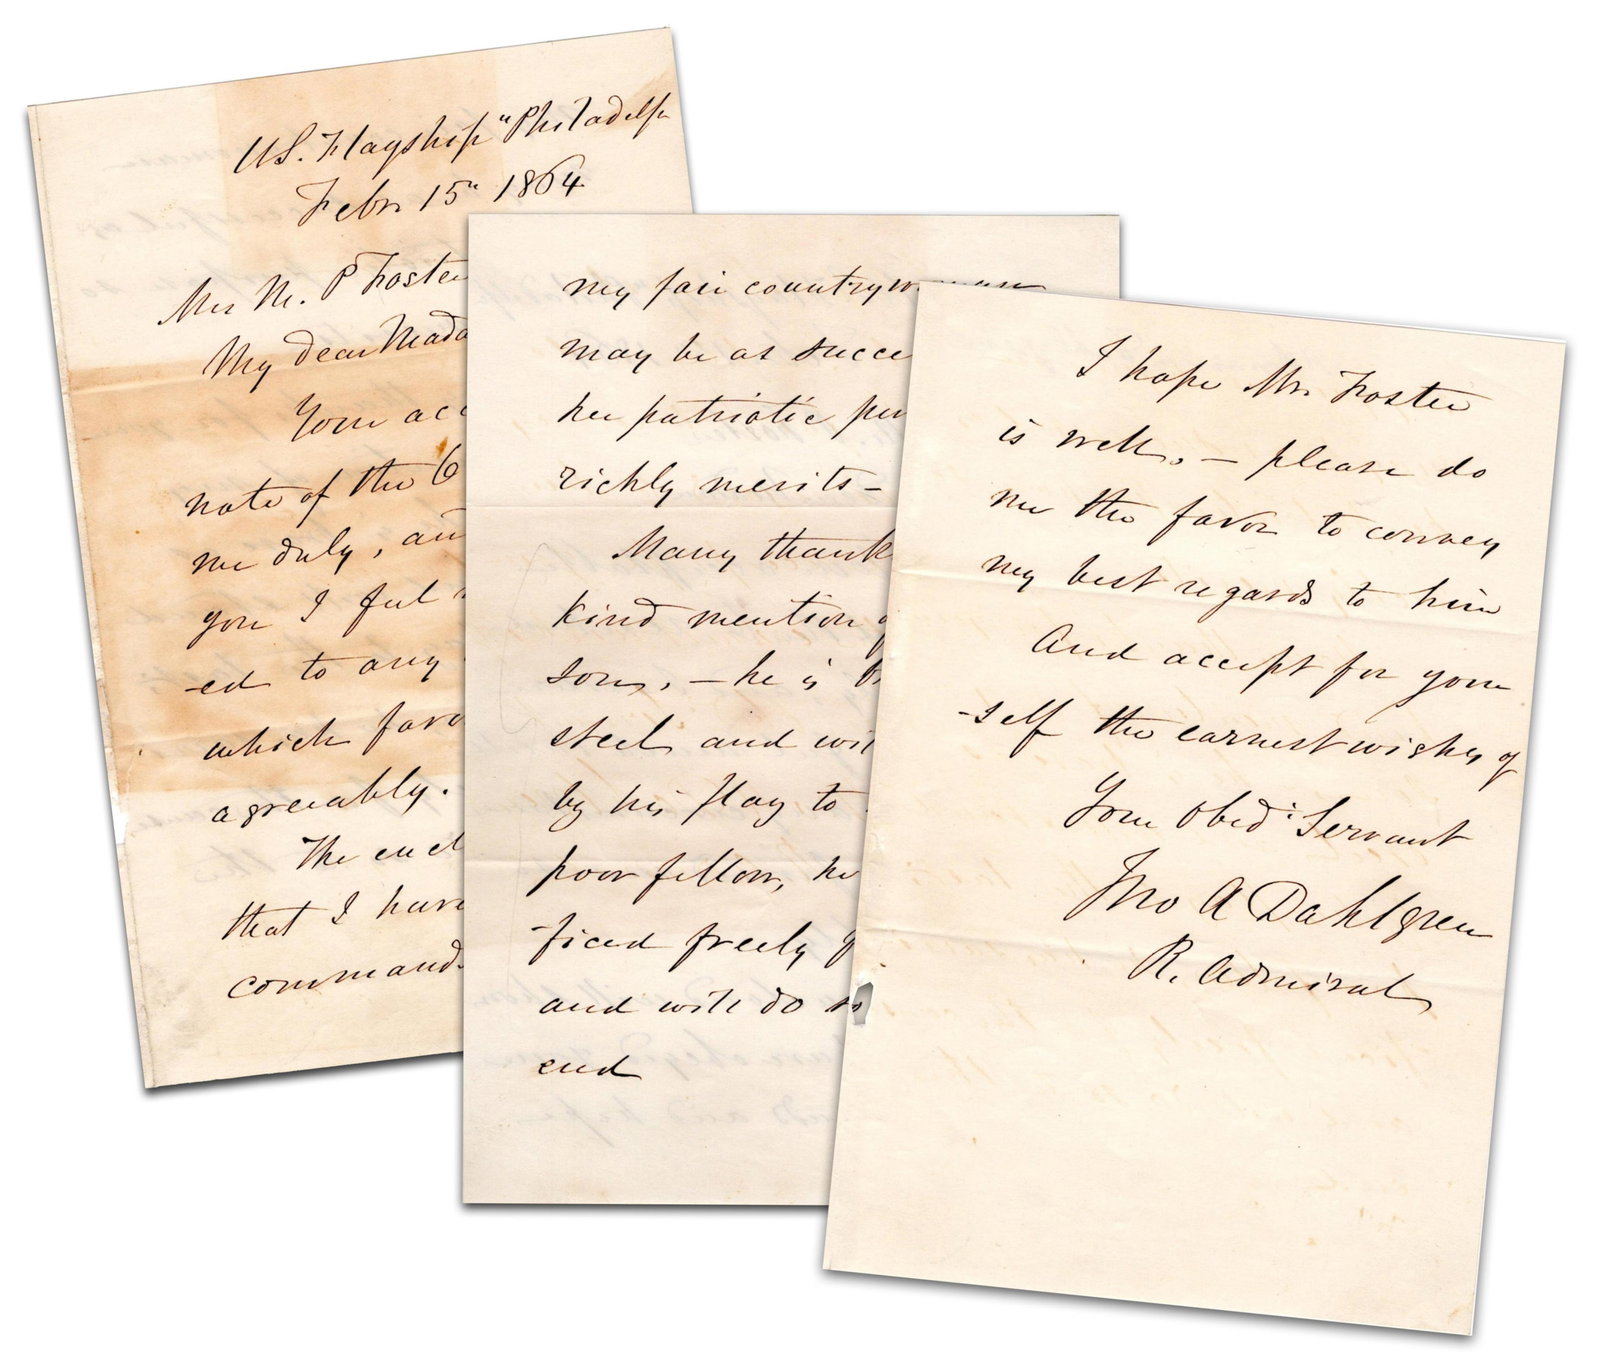 US. Flagship "Philadelp
Feby 15" 1864
Mrs M. P Foster
My dear Mada
Your acc
note of the 6
me duly, and
you I feel
-ed to any
which favo
agreeably.
The encl
that I have
command.
my fair countrywoman
may be as succe
her patriotic pur
richly merits-
Many thank
kind mention
son, - he is
steel and wil
by his flag to
poor fellow, he
-ficed freely
and will do so
end
I hope Mr. Foster
is well, - please do
me the favor to convey
my best regards to him
And accept for your
-self the earnest wishes of
Your Obed: Servant
Jno A Dahlgren
R. Admiral